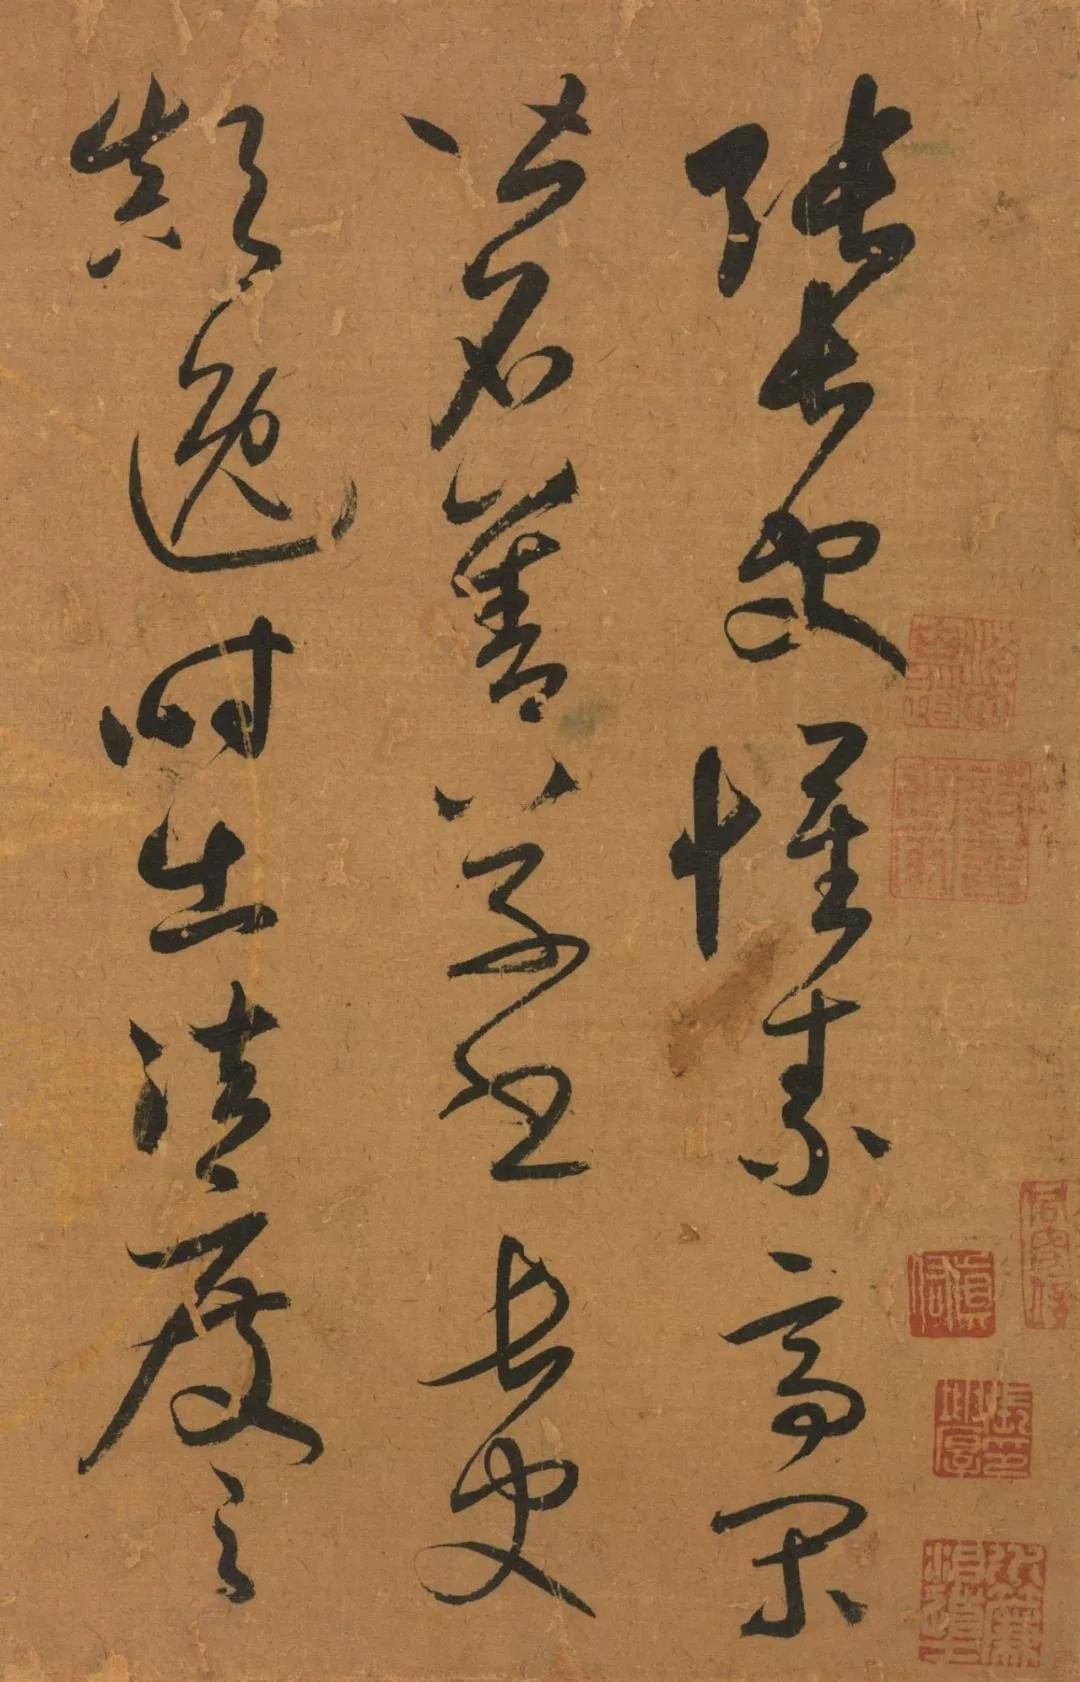 張長史懷素高閑
皆名善草書長史
顛逸時出法度之